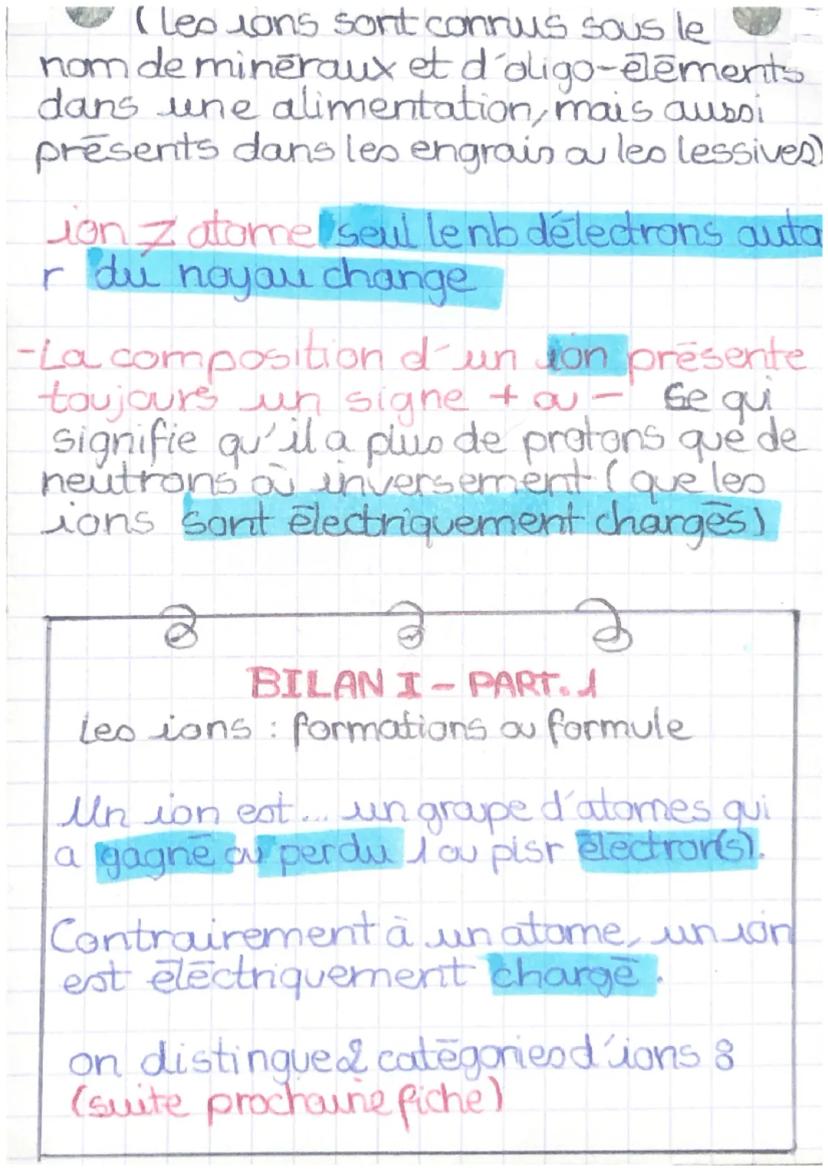 (les ions sont connus sous le
nom de minéraux et d'oligo-éléments
dans une alimentation, mais aussi
présents dans les engrais ou les lessives)
ion ≠ atome seul le nb d'électrons autou
r du noyau change
-La composition d'un ion présente
toujours un signe + ou - Ce qui
signifie qu'il a plus de protons que de
neutrons où inversement (que les
ions sont électriquement chargés)
BILAN I - PART. 1
Les ions : formations ou formule
Un ion est... un groupe d'atomes qui
a gagné ou perdu 1 ou plsr électron(s).
Contrairement à un atome, un ion
est électriquement chargé.
on distingue 2 catégories d'ions :
(suite prochaine fiche)